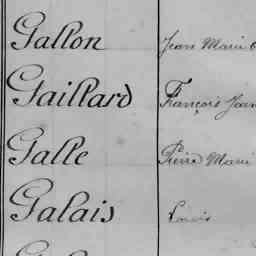 Gallon Jean Marie
Gaillard François
Galle Pierre Marie
Galais Louis